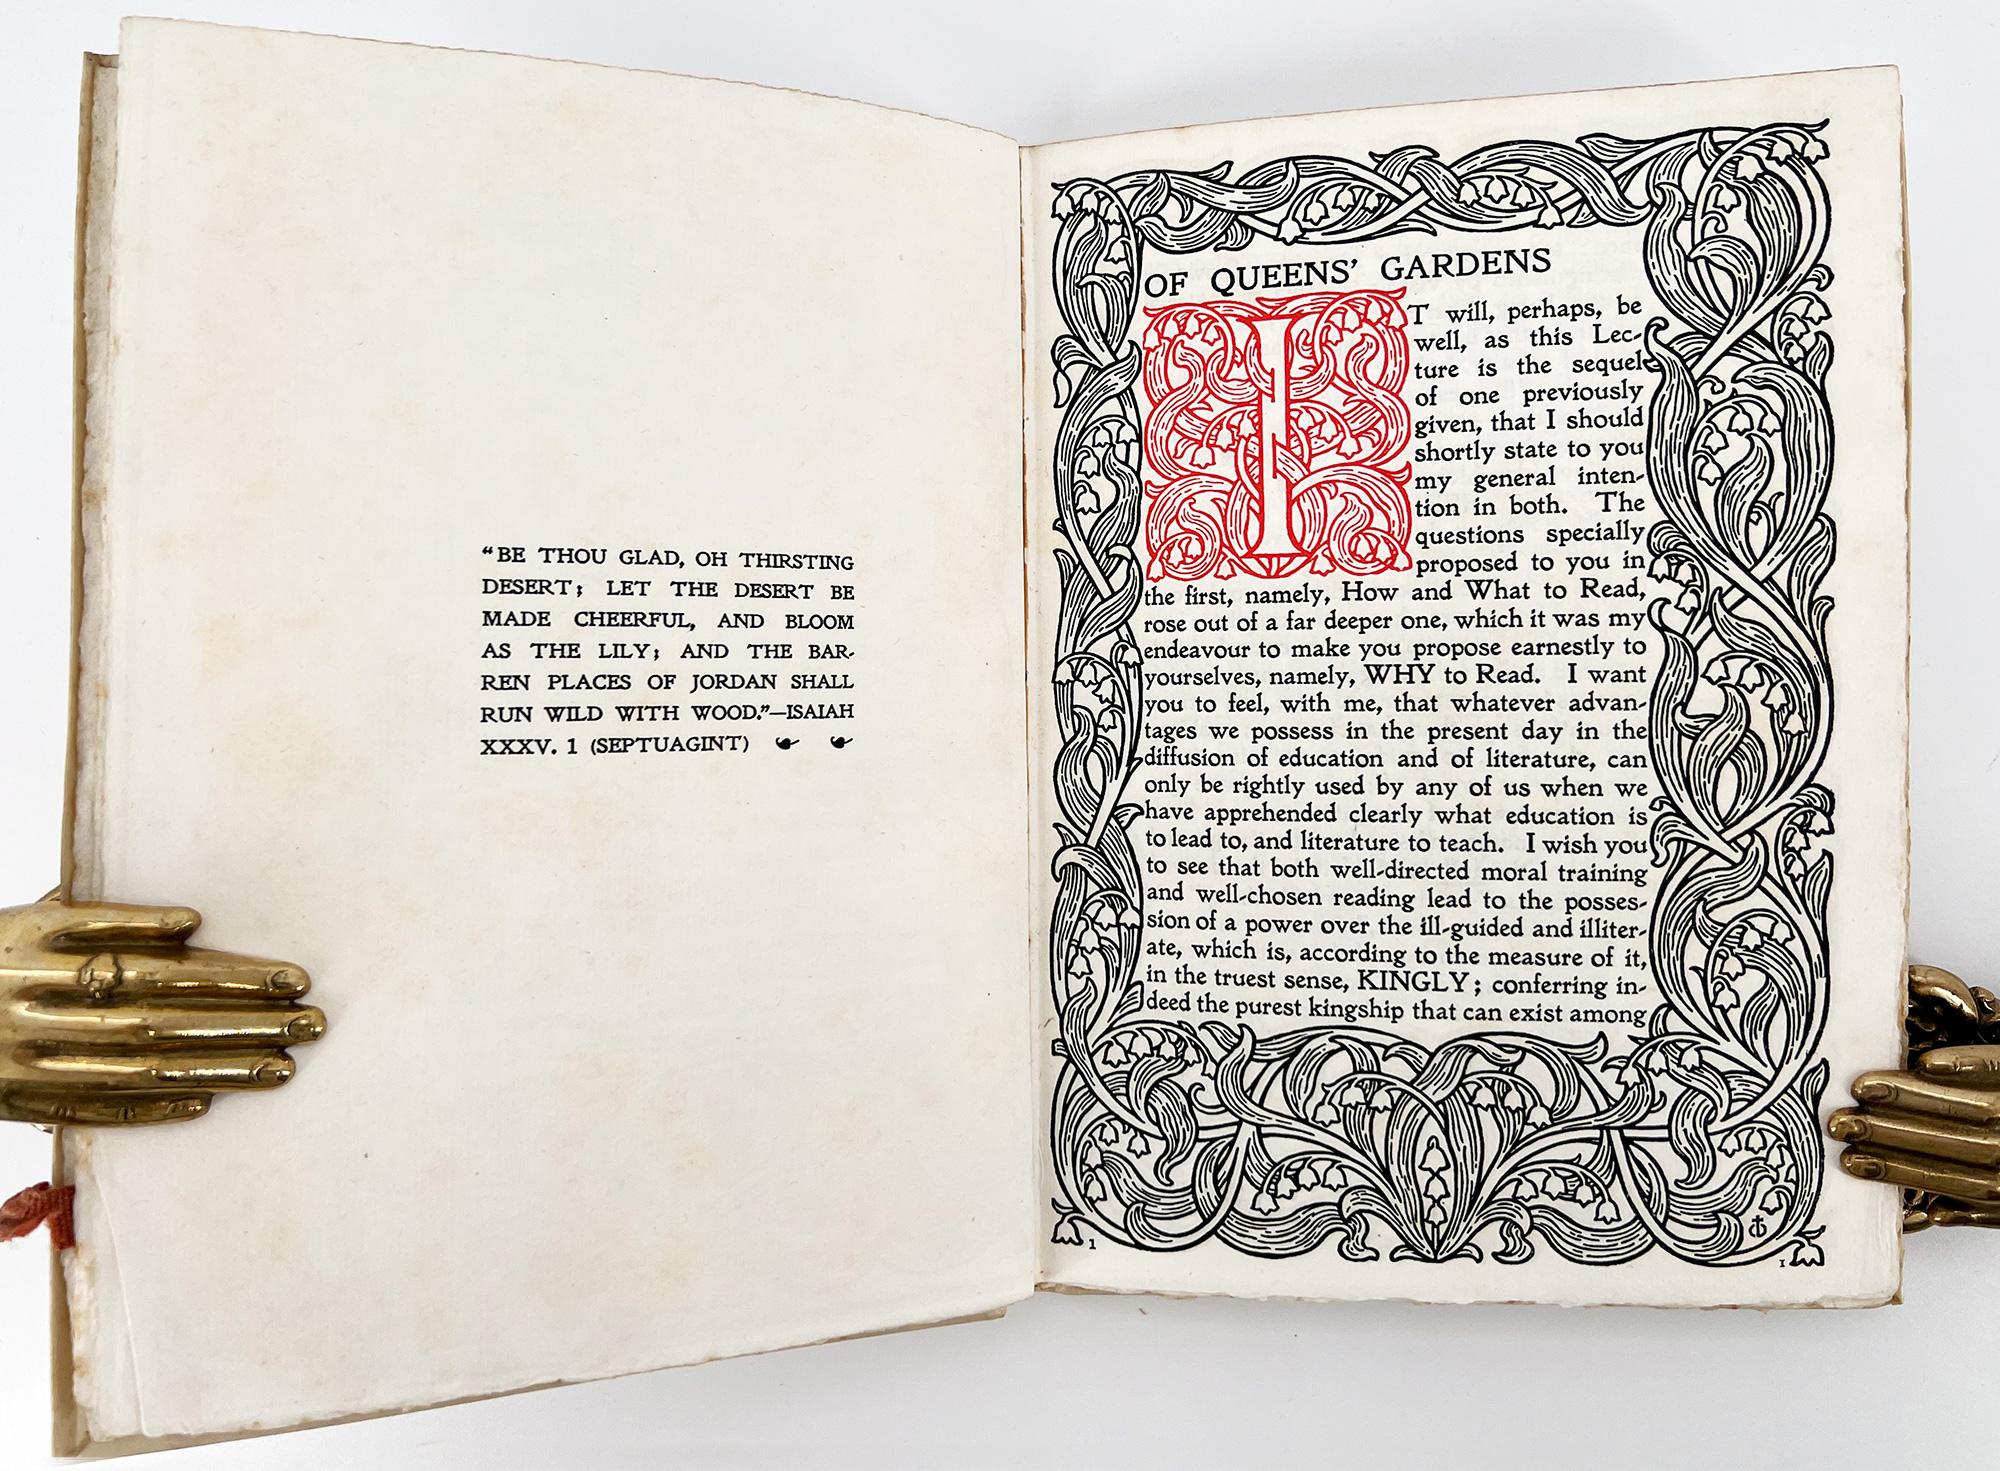 “BE THOU GLAD, OH THIRSTING
DESERT; LET THE DESERT BE
MADE CHEERFUL, AND BLOOM
AS THE LILY; AND THE BAR-
REN PLACES OF JORDAN SHALL
RUN WILD WITH WOOD.”—ISAIAH
XXXV. 1 (SEPTUAGINT)
OF QUEENS’ GARDENS
IT will, perhaps, be
well, as this Lec-
ture is the sequel
of one previously
given, that I should
shortly state to you
my general inten-
tion in both. The
questions specially
proposed to you in
the first, namely, How and What to Read,
rose out of a far deeper one, which it was my
endeavour to make you propose earnestly to
yourselves, namely, WHY to Read. I want
you to feel, with me, that whatever advan-
tages we possess in the present day in the
diffusion of education and of literature, can
only be rightly used by any of us when we
have apprehended clearly what education is
to lead to, and literature to teach. I wish you
to see that both well-directed moral training
and well-chosen reading lead to the posses-
sion of a power over the ill-guided and illiter-
ate, which is, according to the measure of it,
in the truest sense, KINGLY; conferring in-
deed the purest kingship that can exist among
1
1